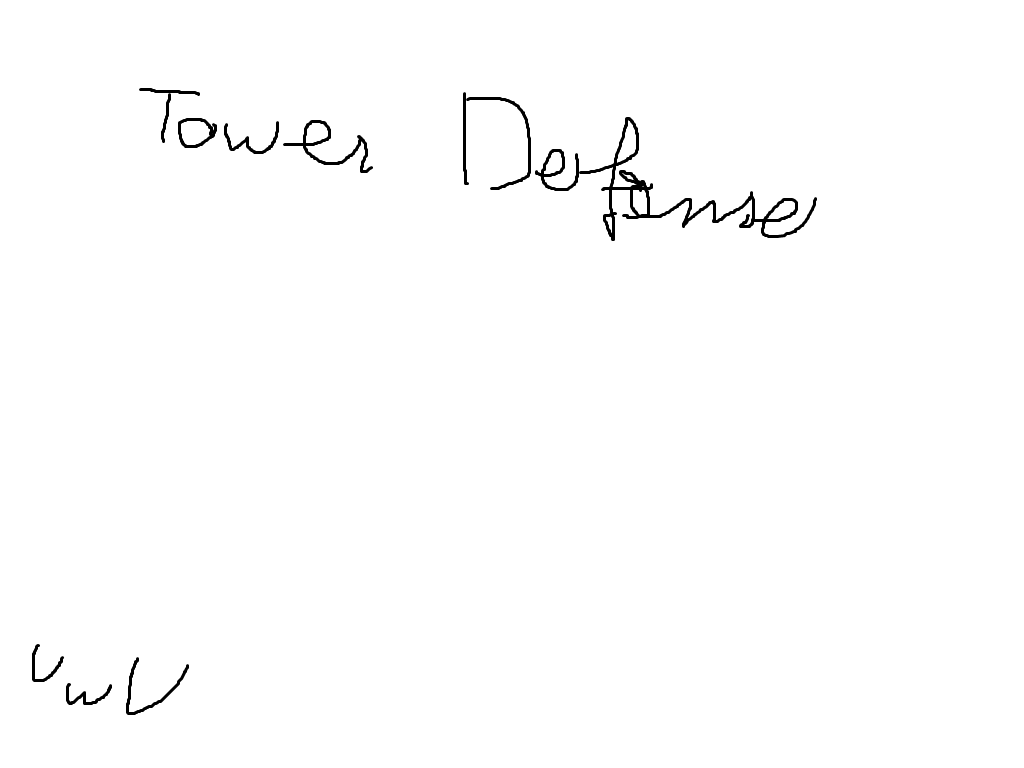 Tower Defense
UwU